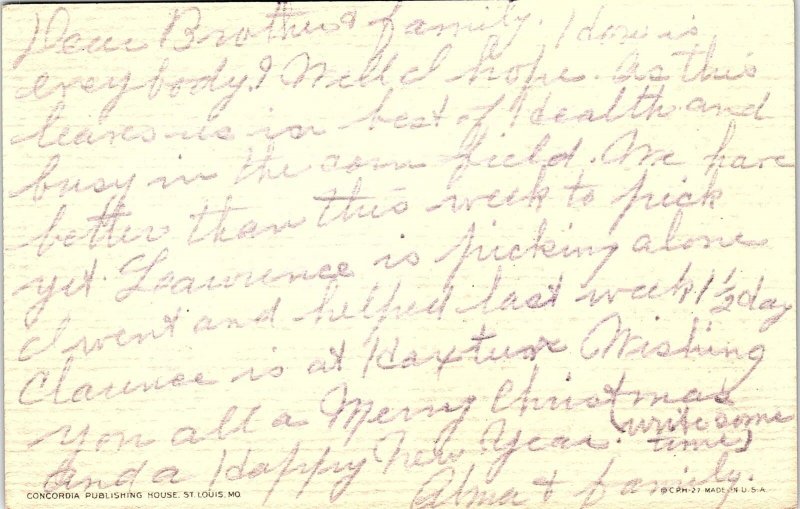 Dear Brother & family. How is
everybody? Well I hope. As this
leaves us in best of Health and
busy in the corn field. We have
better than this week to pick
yet. Lawrence is picking alone
I went and helped last week 1 1/2 day
Clarence is at Haxtun Wishing
you all a Merry Christmas
and a Happy New Year. (write some
time)
Alma & family.
CONCORDIA PUBLISHING HOUSE, ST. LOUIS, MO.
©CPH-27 MADE IN U.S.A.